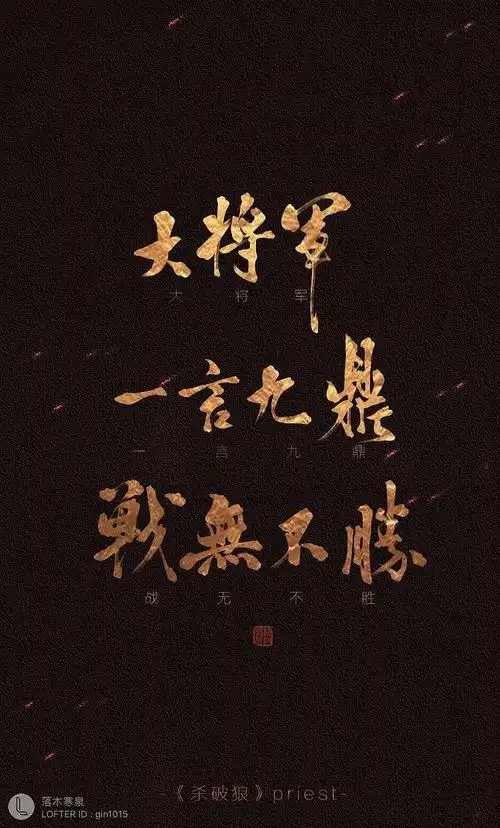 大将軍
大将军
一言九鼎
一言九鼎
戰無不勝
战无不胜
-《杀破狼》priest-
落木寒泉
LOFTER ID : gin1015